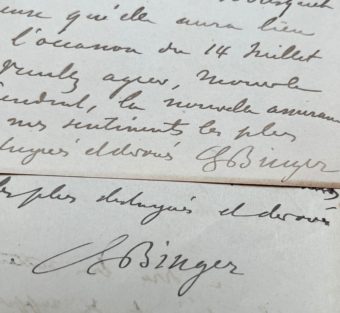 qu'elle aura lieu
l'occasion du 14 Juillet
agréer,
la nouvelle assuran
mes sentiments les plus
et dévoués GBinger
les plus distingués et dévoués
GBinger